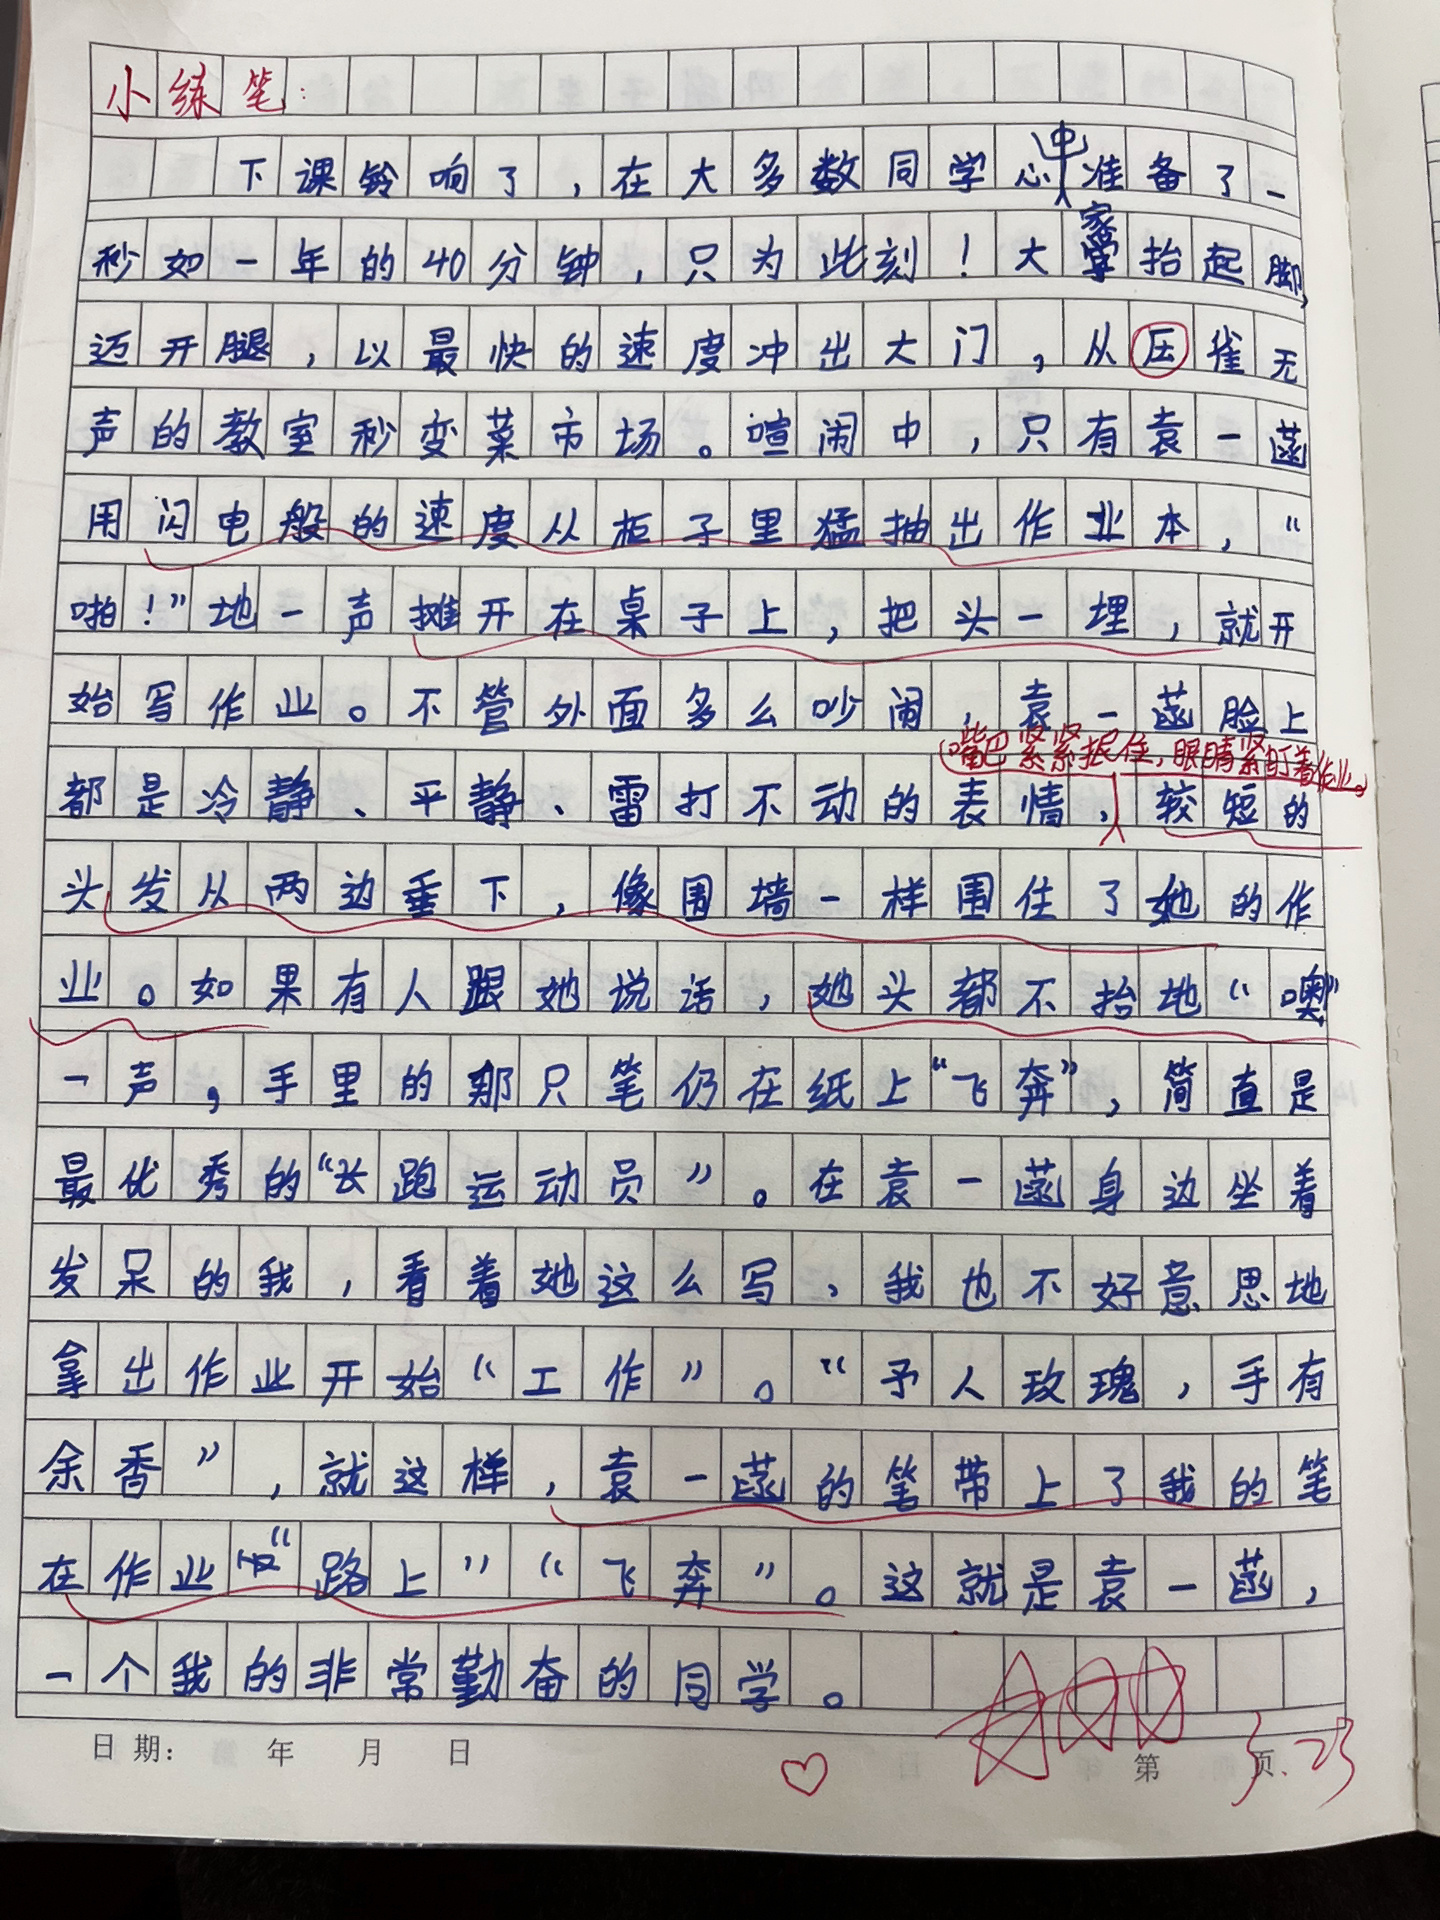 小练笔：
下课铃响了，在大多数同学心中准备了一
秒如一年的40分钟，只为此刻！大家抬起脚，
迈开腿，以最快的速度冲出大门，从压雀无
声的教室秒变菜市场。喧闹中，只有袁一菡
用闪电般的速度从柜子里猛抽出作业本，“
啪！”地一声摊开在桌子上，把头一埋，就开
始写作业。不管外面多么吵闹，袁一菡脸上
嘴巴紧紧抿住，眼睛紧盯着作业。
都是冷静、平静、雷打不动的表情，较短的
头发从两边垂下，像围墙一样围住了她的作
业。如果有人跟她说话，她头都不抬地“噢”
一声，手里的那只笔仍在纸上“飞奔”，简直是
最优秀的“长跑运动员”。在袁一菡身边坐着
发呆的我，看着她这么写，我也不好意思地
拿出作业开始“工作”。“予人玫瑰，手有
余香”，就这样，袁一菡的笔带上了我的笔
在作业“路上”“飞奔”。这就是袁一菡，
一个我的非常勤奋的同学。
日期： 年 月 日 第 页
3.23